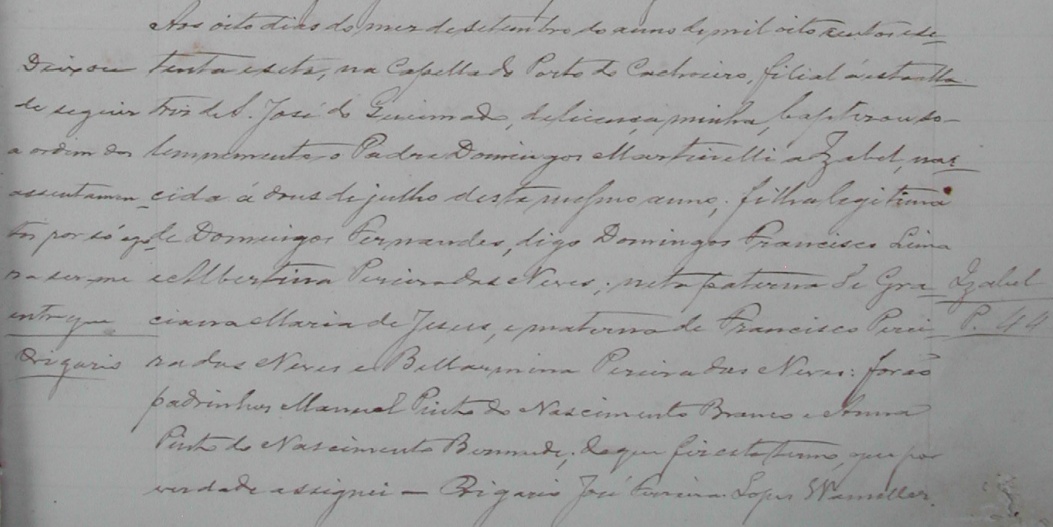 Aos oito dias do mez de setembro do anno de mil oito centos e se-
tenta e sete, na Capella do Porto do Cachoeiro, filial á esta Ma
triz de S. José do Queimado, de licença minha, baptizou so-
lemnemente o Padre Domingos Martinelli a Izabel, nas-
cida á dous de julho deste mesmo anno, filha legitima
de Domingos Fernandes, digo Domingos Francisco Lima
e Albertina Pereira das Neves; neta paterna de Gra-
ciana Maria de Jesus, e materna de Francisco Perei-
ra das Neves e Bellarmina Pereira das Neves: forão
padrinhos Manuel Pinto do Nascimento Branco e Anna
Pinto do Nascimento Bermude; do que fiz este termo, que por
verdade assignei — O Vigario José Ferreira Lopes
Deixou
de seguir
a ordem dos
assentamen-
tos por só ago-
ra ser-me
entregue
O Vigario
Izabel
P. 44